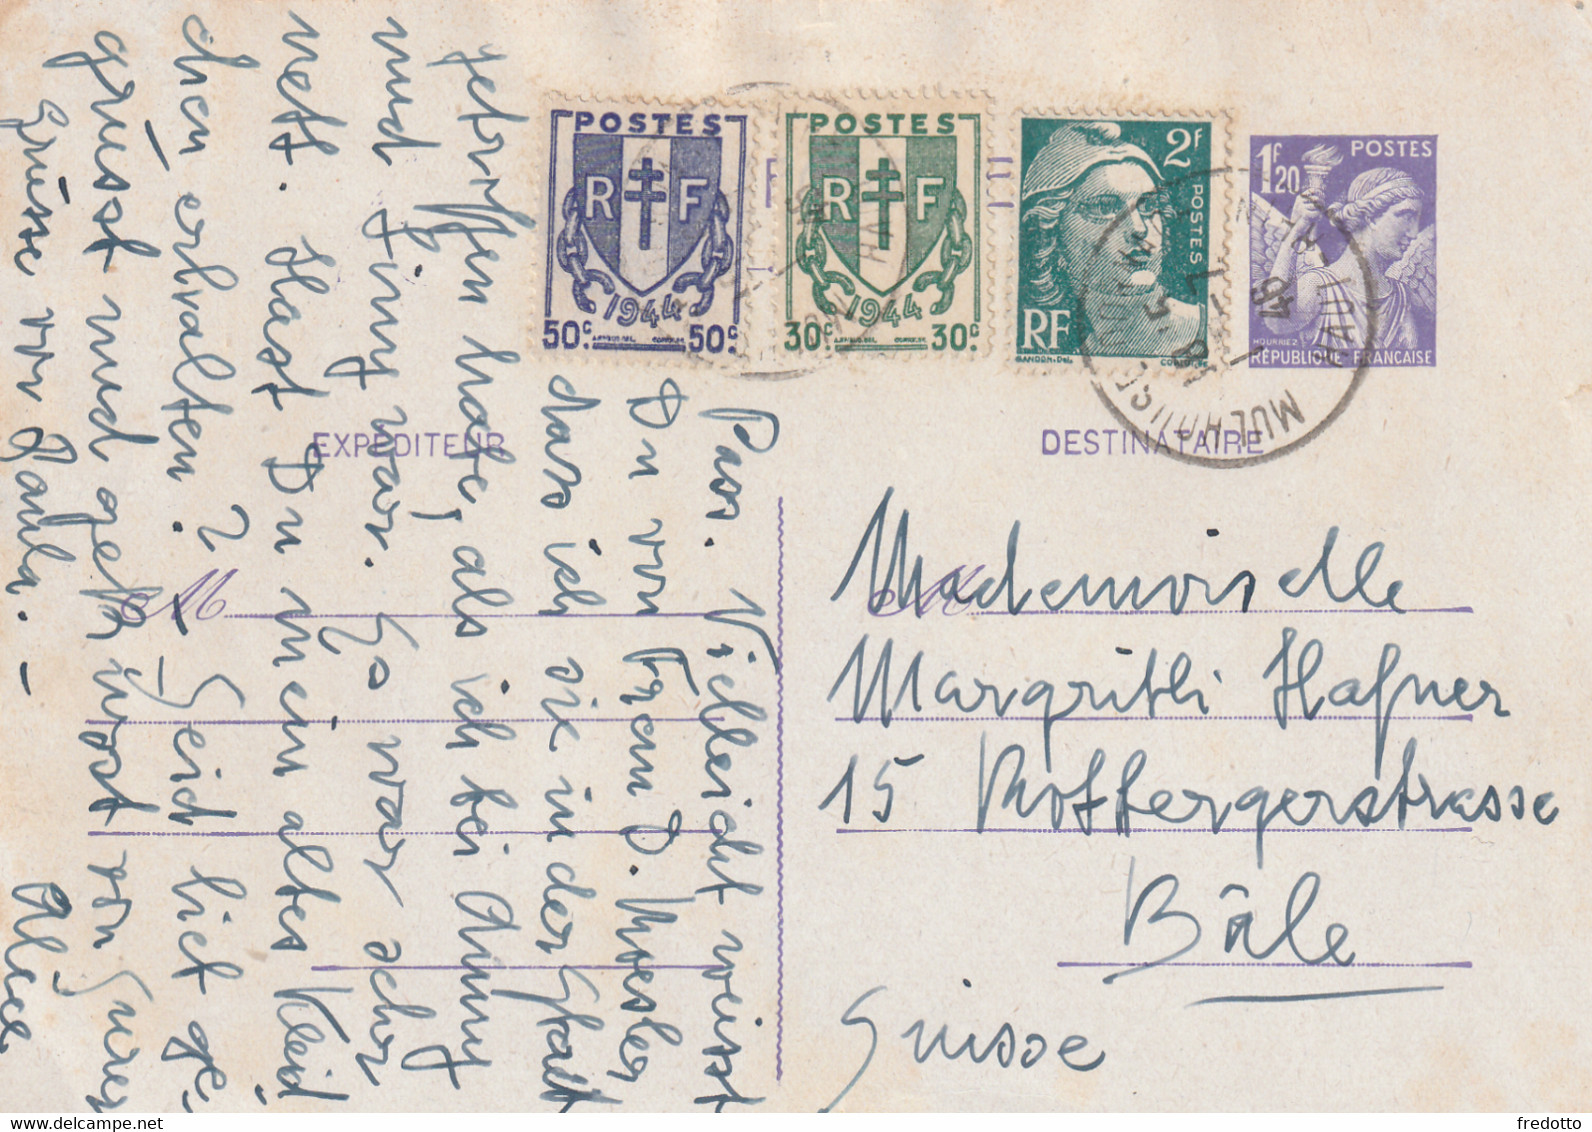 POSTES
R F
1944
50c 50c
POSTES
R F
1944
30c 30c
2f
POSTES
RF
GANDON.DEL
1F20
POSTES
HOURRIEZ
RÉPUBLIQUE FRANÇAISE
MULHOUSE
HAUT RHIN
EXPÉDITEUR
DESTINATAIRE
M
M
Mademoiselle
Margritli Hafner
15
Bâle
Suisse
Pass. Vielleicht weisst
Du von Frau D. Moesler
dass ich sie in der Stadt
getroffen habe, als ich bei Anny
und Jimy war. Es war sehr
nett. Hast Du mein altes Kleid-
chen erhalten? – Seid lieb ge-
grüsst und geküsst von Eurer
Alice
Grüsse von Paula. –
fredotto